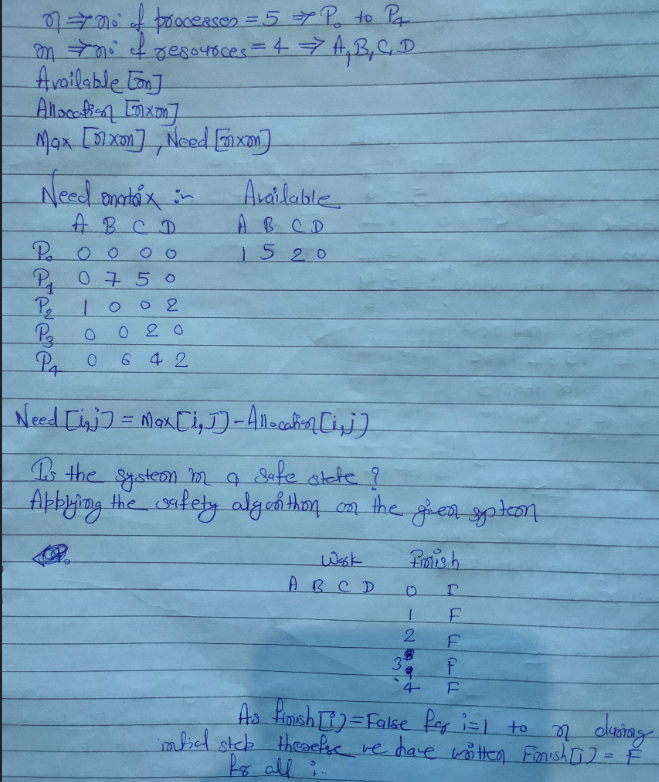 n ⇒ no: of processes = 5 ⇒ P₀ to P₄
m ⇒ no: of resources = 4 ⇒ A, B, C, D
Available [m]
Allocation [n×m]
Max [n×m], Need [n×m]
Need matrix :- Available
A B C D A B C D
P₀ 0 0 0 0 1 5 2 0
P₁ 0 7 5 0
P₂ 1 0 0 2
P₃ 0 0 2 0
P₄ 0 6 4 2
Need [i,j] = Max [i,J] - Allocation [i,j]
Is the system in a safe state ?
Applying the safety algorithm on the given system
Work Finish
A B C D 0 F
1 F
2 F
3 F
4 F
As finish [i] = False for i=1 to n during
initial step therefore we have written Finish [i] = F
for all i..